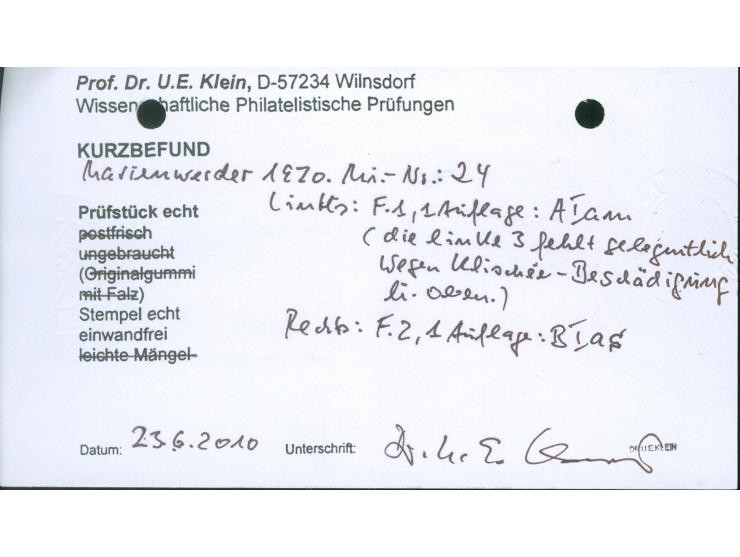 Prof. Dr. U.E. Klein, D-57234 Wilnsdorf
Wissenschaftliche Philatelistische Prüfungen
KURZBEFUND
Marienwerder 1920. Mi.-Nr.: 24
Links: F.1, 1 Auflage: AIam
Prüfstück echt
(die linke 3 fehlt gelegentlich
postfrisch
ungebraucht
wegen Klischée-Beschädigung
(Originalgummi
li. oben.)
mit Falz)
Stempel echt
Rechts: F.2, 1 Auflage: BIas
einwandfrei
leichte Mängel
Datum: 23.6.2010 Unterschrift: Dr. U. E. Klein DR.U.E.KLEIN